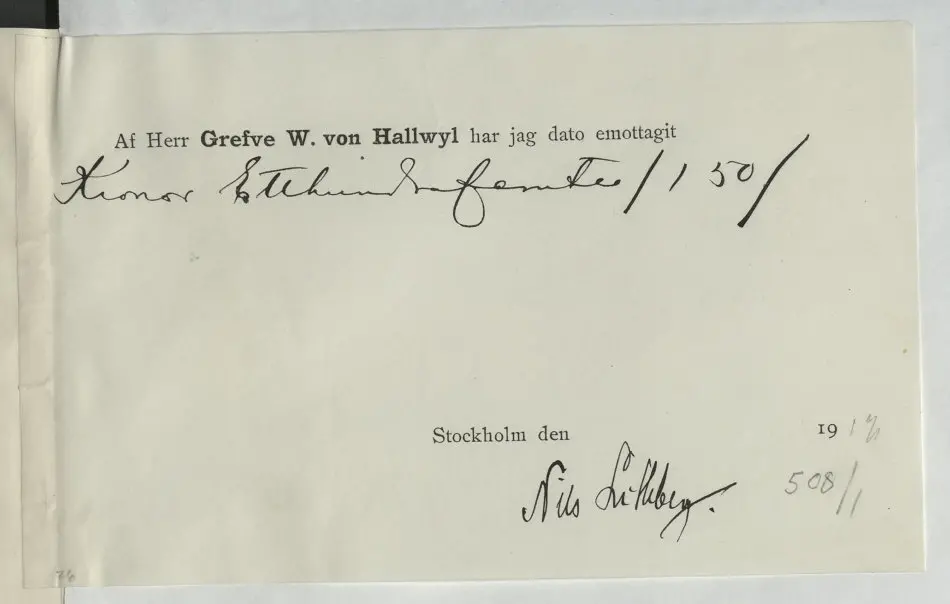 Af Herr Grefve W. von Hallwyl har jag dato emottagit
Kronor Etthundrafemtio / 150 /
Stockholm den 19
Nils Lithberg.
508/1